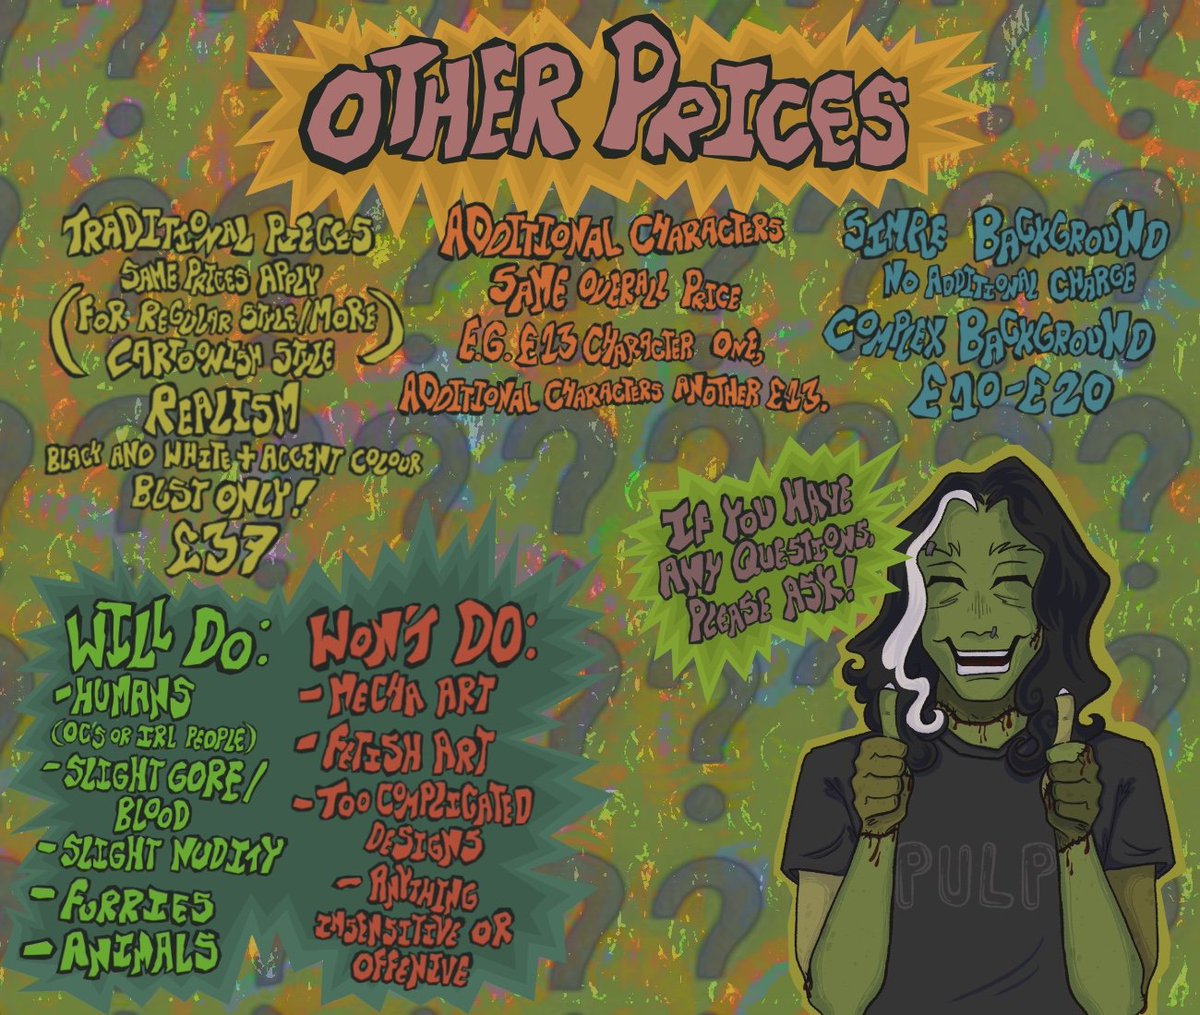 OTHER PRICES
TRADITIONAL PIECES
SAME PRICES APPLY
(FOR REGULAR STYLE/MORE
CARTOONISH STYLE)
REALISM
BLACK AND WHITE + ACCENT COLOUR
BUST ONLY!
£37
ADDITIONAL CHARACTERS
SAME OVERALL PRICE
E.G. £13 CHARACTER ONE,
ADDITIONAL CHARACTERS ANOTHER £13.
SIMPLE BACKGROUND
NO ADDITIONAL CHARGE
COMPLEX BACKGROUND
£10-£20
IF YOU HAVE
ANY QUESTIONS,
PLEASE ASK!
WILL DO:
-HUMANS
(OC'S OR IRL PEOPLE)
-SLIGHT GORE/
BLOOD
-SLIGHT NUDITY
-FURRIES
-ANIMALS
WON'T DO:
-MECHA ART
-FETISH ART
-TOO COMPLICATED
DESIGNS
-ANYTHING
INSENSITIVE OR
OFFENIVE
PULP